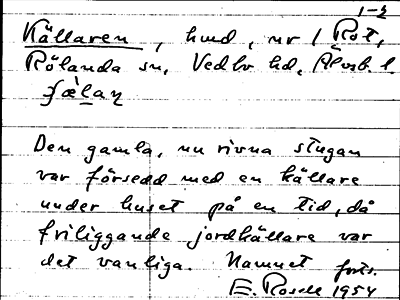 1-2
Källaren, hmd, nr 1 Rot,
Rölanda sn, Vedbo hd, Älvsb. l.
Den gamla, nu rivna stugan
var försedd med en källare
under huset på en tid, då
friliggande jordkällare var
det vanliga. Namnet forts.
E. Rosell 1954